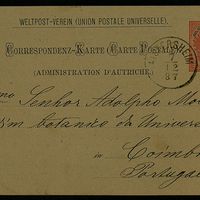 WELTPOST-VEREIN (UNION POSTALE UNIVERSELLE).
CORRESPONDENZ-KARTE (CARTE POSTALE)
(ADMINISTRATION D'AUTRICHE).
Senhor Adolpho Mo
botanico da Univers
in Coimb
Portuga